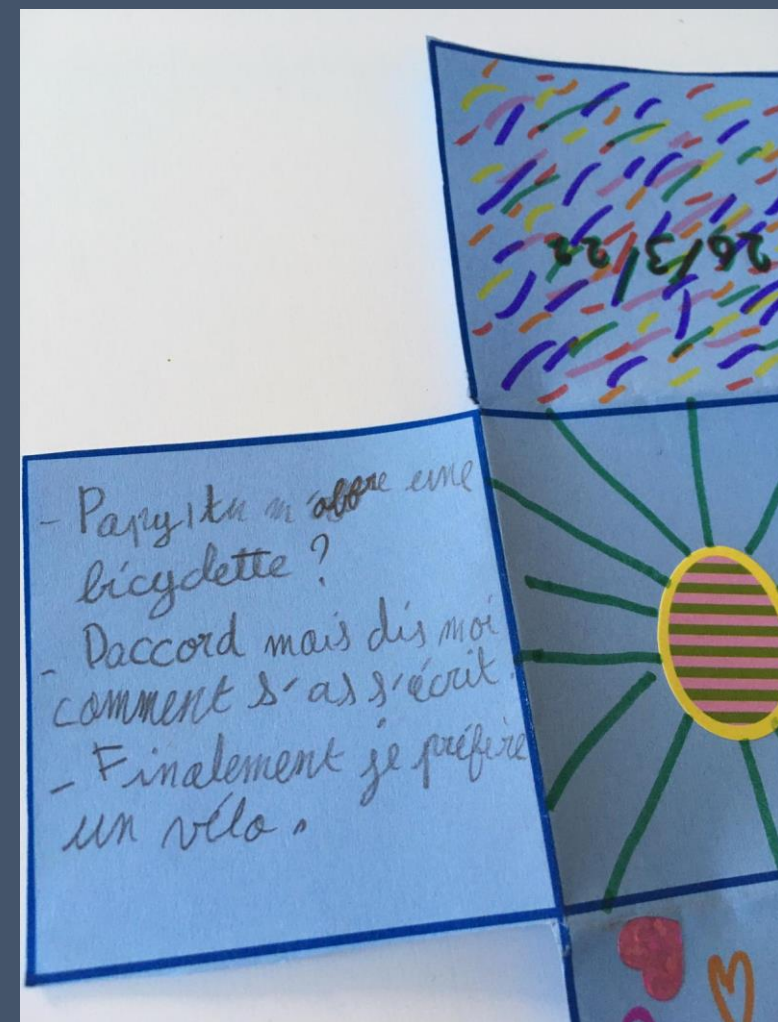 26/3/22
- Papy, tu m'offre une
bicyclette ?
- Daccord mais dis moi
comment s'as s'écrit.
- Finalement je préfère
un vélo.